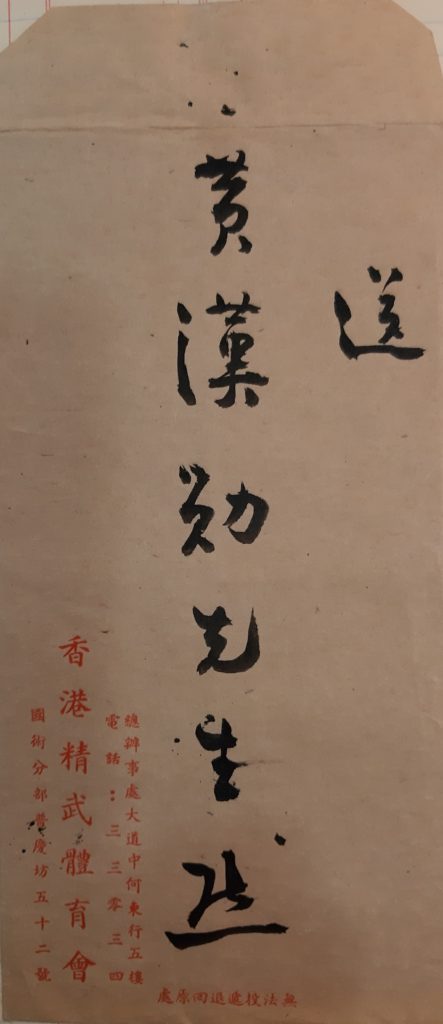 送
黃漢勛先生
總辦事處大道中何東行五樓
電話：三三零三四
香港精武體育會
國術分部普慶坊五十二號
無法投遞退回原處